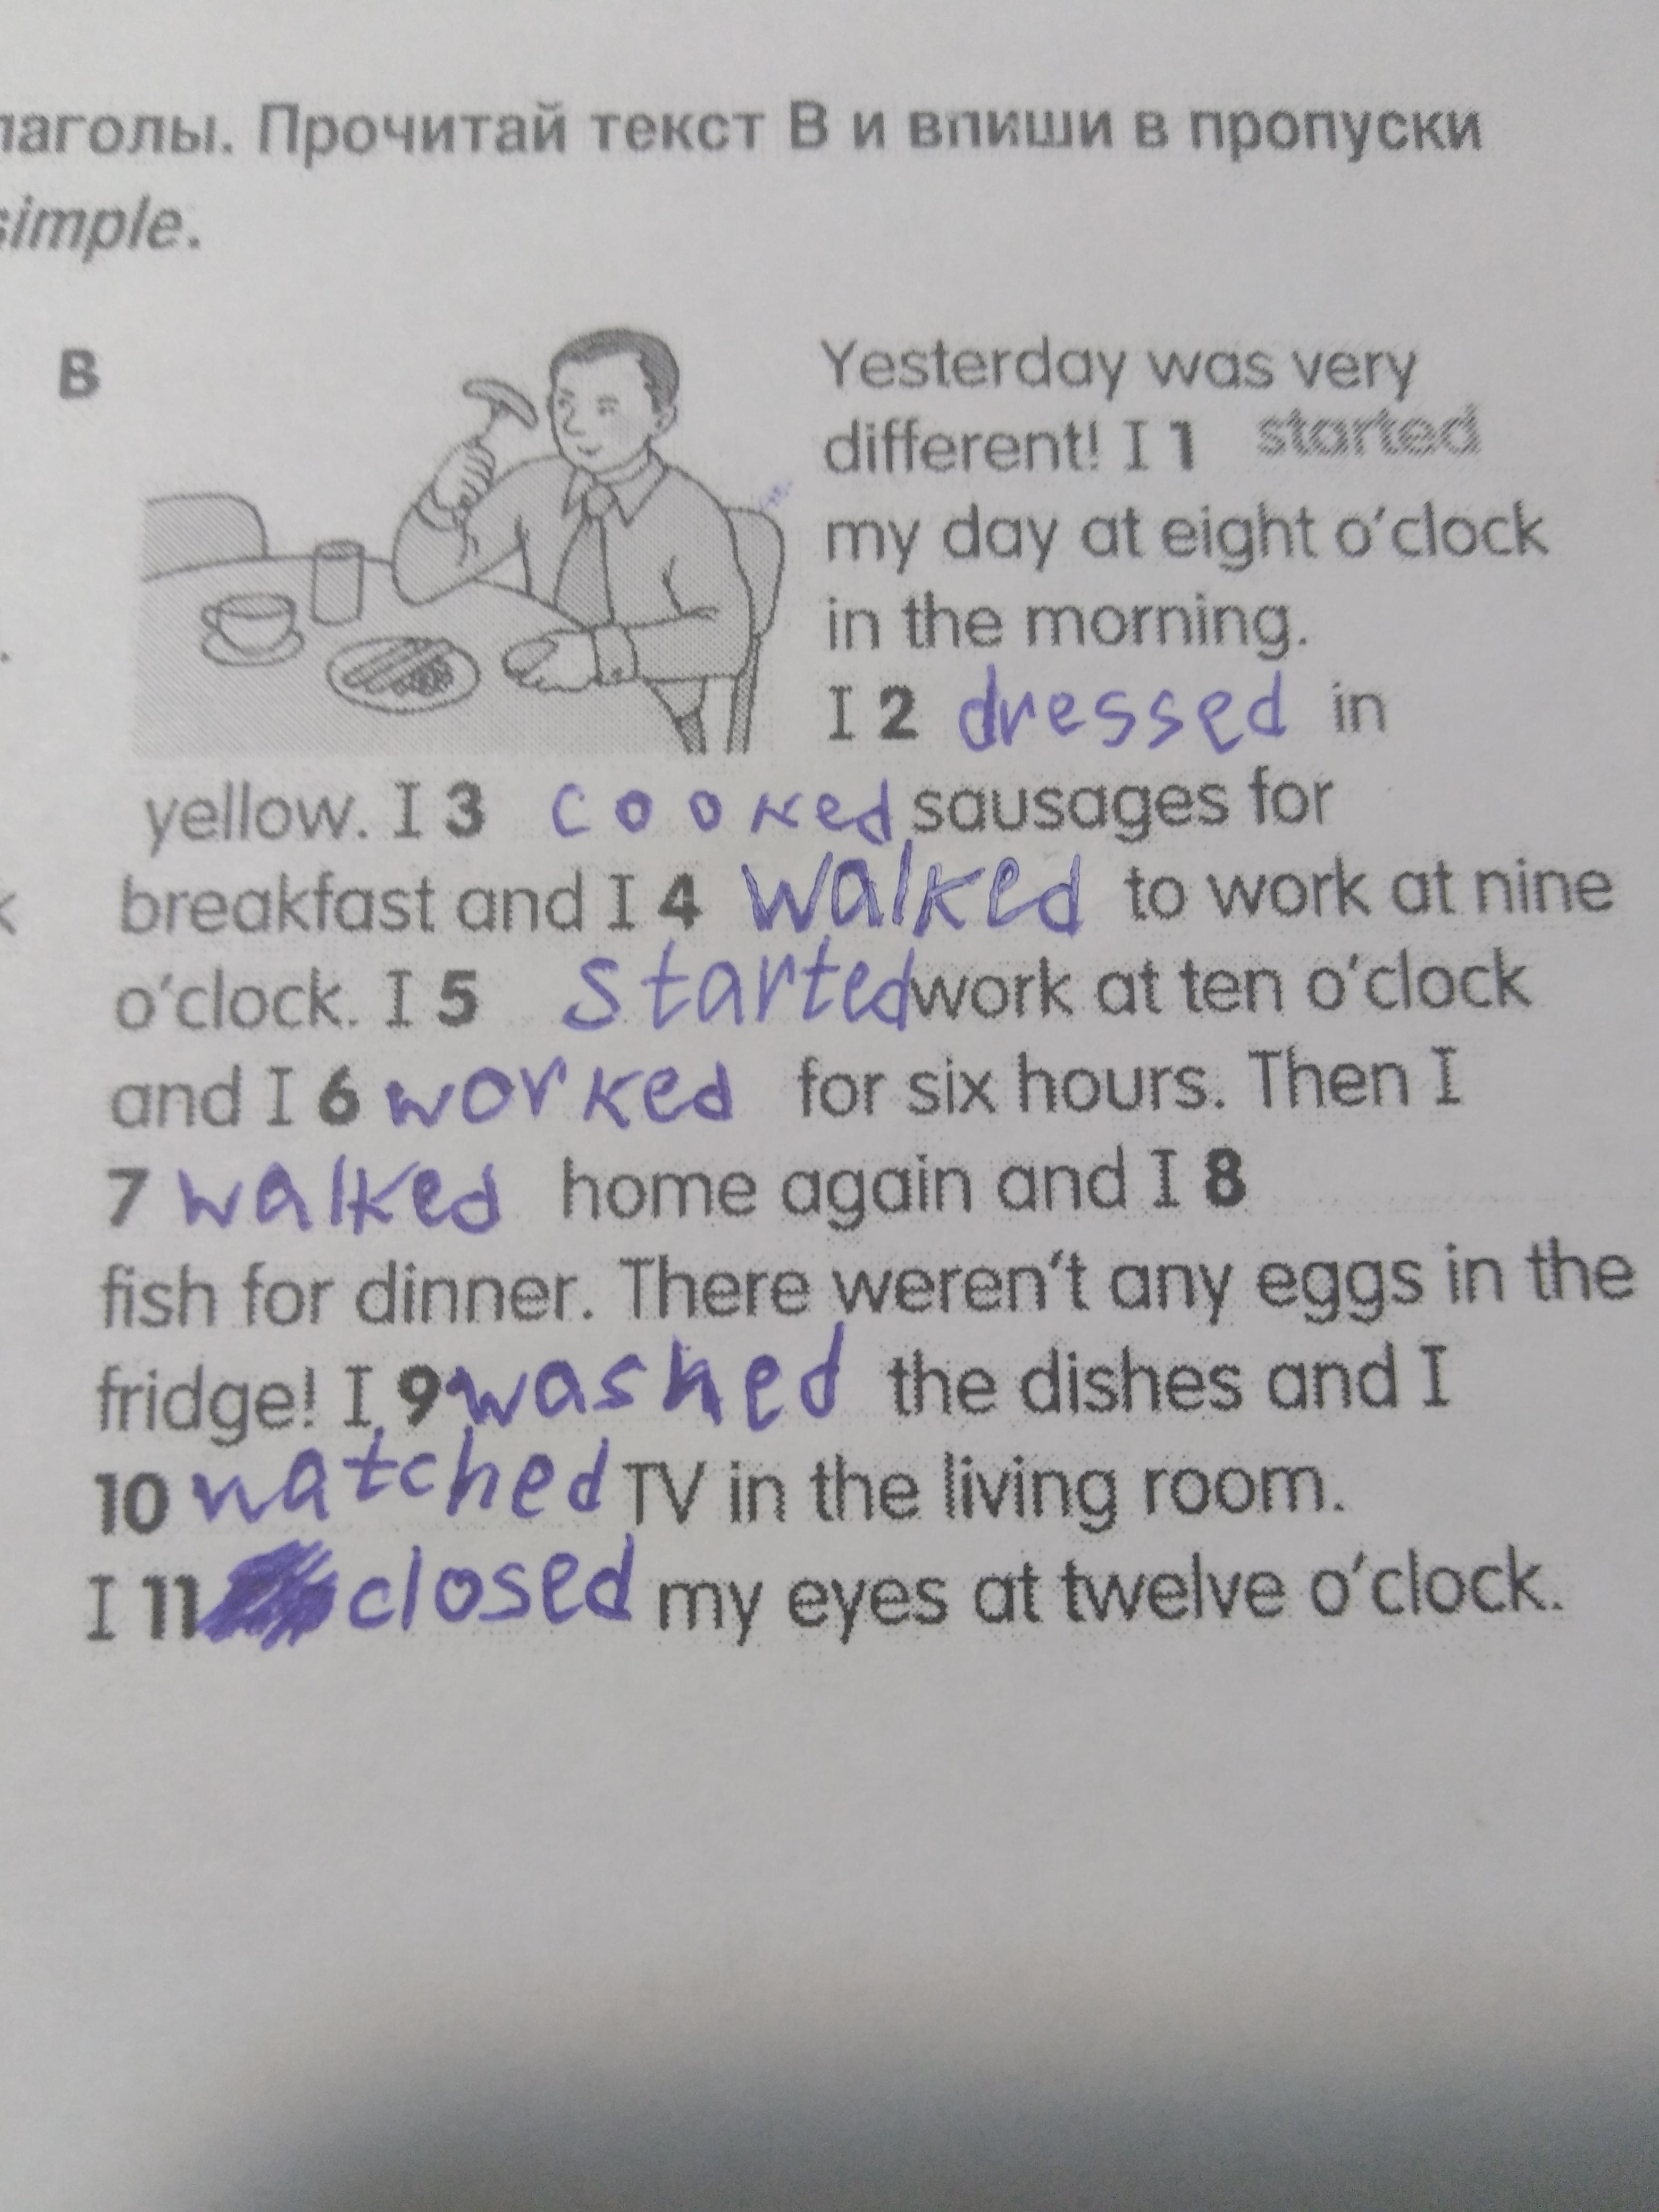 лаголы. Прочитай текст В и впиши в пропуски
simple.
B
Yesterday was very
different! I 1 started
my day at eight o'clock
in the morning.
I 2 dressed in
yellow. I 3 cooked sausages for
breakfast and I 4 walked to work at nine
o'clock. I 5 started work at ten o'clock
and I 6 worked for six hours. Then I
7 walked home again and I 8
fish for dinner. There weren't any eggs in the
fridge! I 9 washed the dishes and I
10 watched TV in the living room.
I 11 closed my eyes at twelve o'clock.